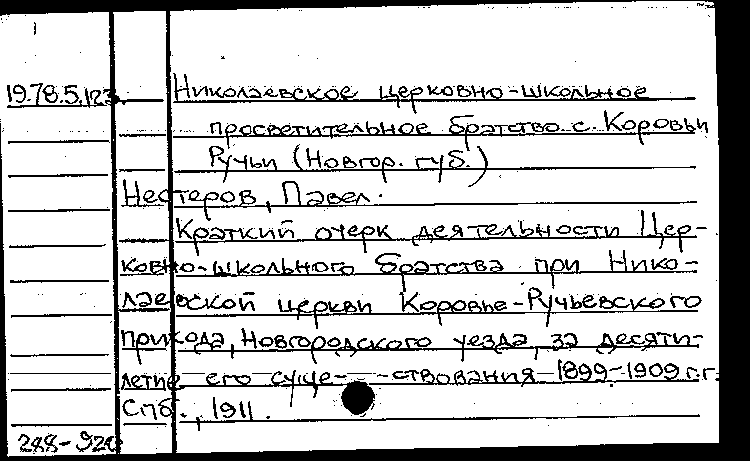 19.78.5.123. Николаевское церковно-школьное
просветительное братство с. Коровьи
Ручьи (Новгор. губ.)
Нестеров, Павел.
Краткий очерк деятельности Цер-
ковно-школьного братства при Нико-
лаевской церкви Коровье-Ручьевского
прихода, Новгородского уезда, за десяти-
летие его суще- -ствования 1899-1909 г.г.
Спб., 1911.
288-920